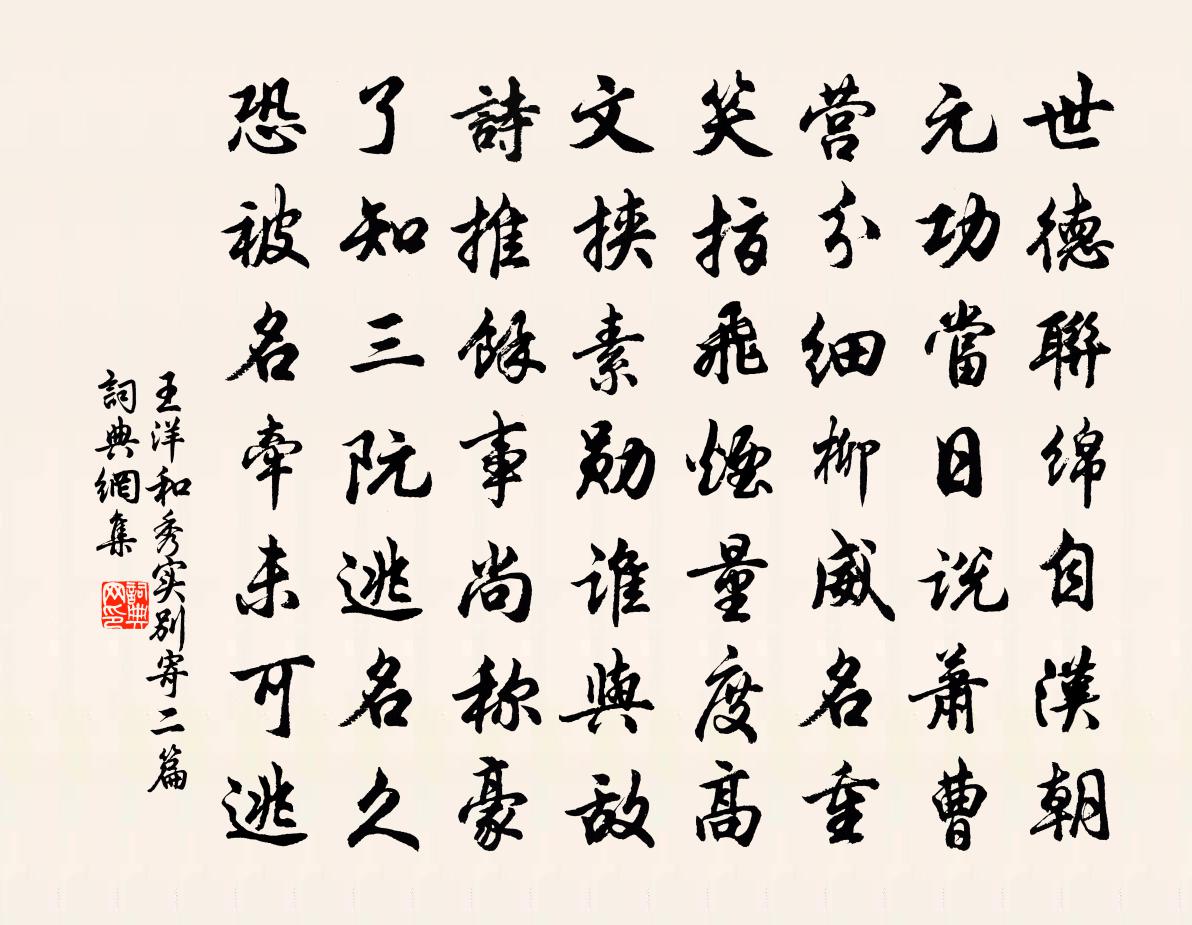 世德聯绵自漢朝
元功當日説蕭曹
营分细柳威名重
笑指飛煙量度高
文挾素勋誰與敌
詩推餘事尚称豪
了知三阮逃名久
恐被名牵未可逃
王洋和秀实别寄二篇
詞典網集
詞典
网印